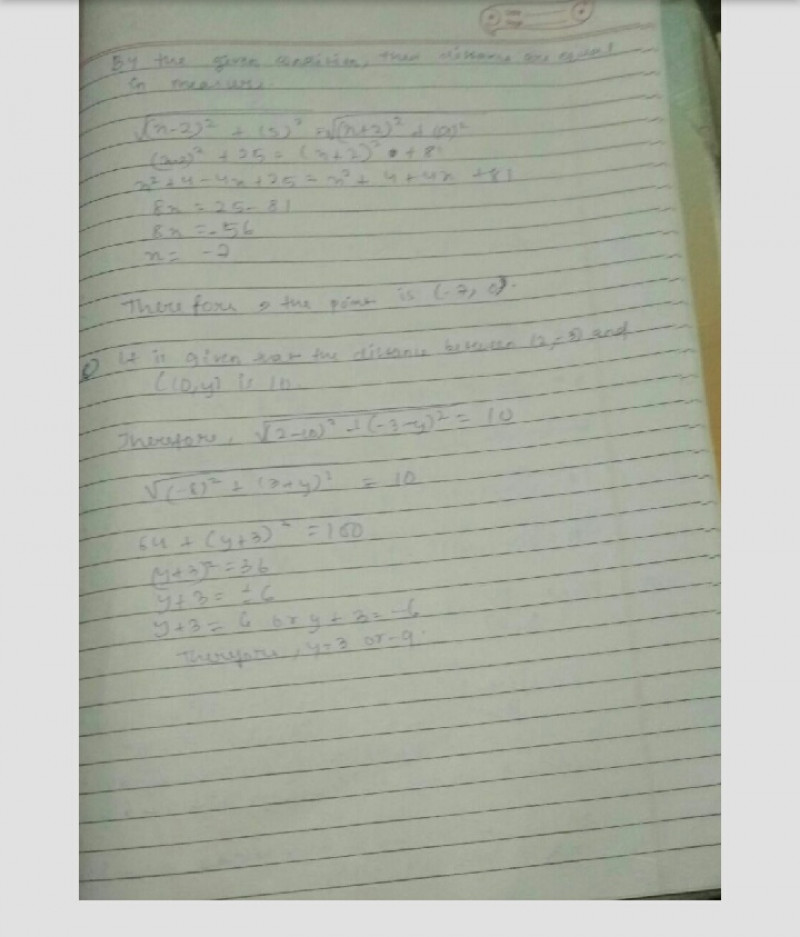 By the given condition, these distance are equal
in measure.
√(x-2)² + (5)² = √(x+2)² + (9)²
(x-2)² + 25 = (x+2)² + 81
x² + 4 - 4x + 25 = x² + 4 + 4x + 81
8x = 25 - 81
8x = -56
x = -7
Therefore, the point is (-7, 0).
It is given that the distance between (2,-3) and
(10,y) is 10.
Therefore, √(2-10)² + (-3-y)² = 10
√(-8)² + (3+y)² = 10
64 + (y+3)² = 100
(y+3)² = 36
y+3 = ±6
y+3 = 6 or y+3 = -6
Therefore, y=3 or -9.